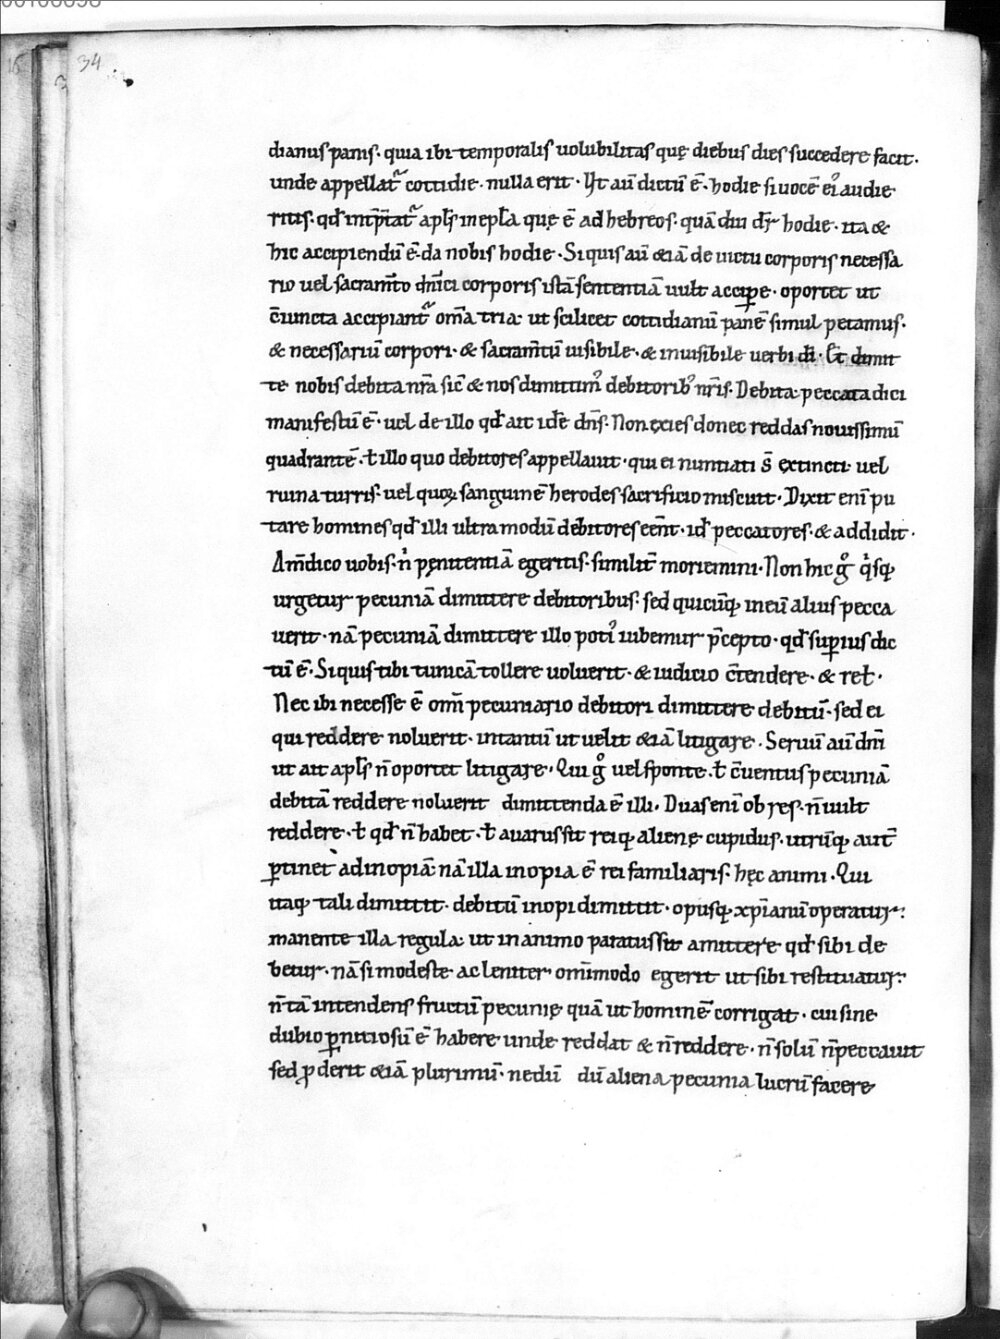 34
dianus panis. quia ibi temporalis uolubilitas quę diebus dies succedere facit.
unde appellat᷑ cottidie. nulla erit. Ut aū dictū ē. hodie si uocē ei᷒ audie
ritis. qđ int̄p̄tat᷑ apl̄s in epl̄a quę ē ad hebreos. quā diu dr̄ hodie. ita &
hic accipiendū ē. da nobis hodie. Si quis aū &iā de uictu corporis necessa
rio uel sacram̄to dn̄ici corporis istā sententiā uult acciꝑe. oportet ut
c̄iuncta accipiant᷑ om̄a tria. ut scilicet cottidianū panē simul petamus.
& necessariū corpori. & sacram̄tū uisibile. & inuisibile uerbi dī. Et dimit
te nobis debita nr̄a sic̄ & nos dimittim᷒ debitorib᷒ nr̄is. Debita. peccata dici
manifestū ē. uel de illo qđ ait idē dn̄s. Non exies donec reddas nouissimū
quadrantē. ł illo quo debitores appellauit. qui ei nuntiati s̄ extincti uel
ruina turris. uel quoꝝ sanguinē herodes sacrificio miscuit. Dixit enī pu
tare homines qđ illi ultra modū debitores eēnt. id̄ peccatores. & addidit.
Am̄ dico uobis. n̍ pęnitentiā egeritis. similit̄ moriemini. Non hic gͦ qͥsqꝫ
urgetur pecuniā dimittere debitoribus. sed quicūqꝫ in eū alius pecca
uerit. nā pecuniā dimittere illo poti᷒ iubemur p̄cepto. qđ suꝑius dic
tū ē. Si quis tibi tunicā tollere uoluerit. & iudicio c̄tendere. & reł.
Nec ibi necesse ē om̄i pecuniario debitori dimittere debitū. sed ei
qui reddere noluerit. in tantū ut uelit &iā litigare. Seruū aū dn̄i
ut ait apl̄s n̄ oportet litigare. Qui gͦ uel sponte. ł c̄uentus pecuniā
debitā reddere noluerit dimittenda ē illi. Duas enī ob res. n̄ uult
reddere. ł qđ n̄ habet. ł auarus sit reiqꝫ alienę cupidus. utrūqꝫ aut̄
ꝑtinet ad inopiā. nā illa inopia ē rei familiaris. hęc animi. Qui
itaqꝫ tali dimittit. debitū inopi dimittit. opusqꝫ xp̄ianū operatur.
manente illa regula. ut in animo paratus sit amittere qđ sibi de
betur. nā si modeste ac leniter om̄imodo egerit ut sibi restituatur.
n̄ tā intendens fructū pecunię quā ut hominē corrigat. cui sine
dubio ꝑnitiosū ē habere unde reddat & n̄ reddere. n̄ solū n̄ peccauit
sed ꝓderit &iā plurimū. ne dū dū aliena pecunia lucrū facere